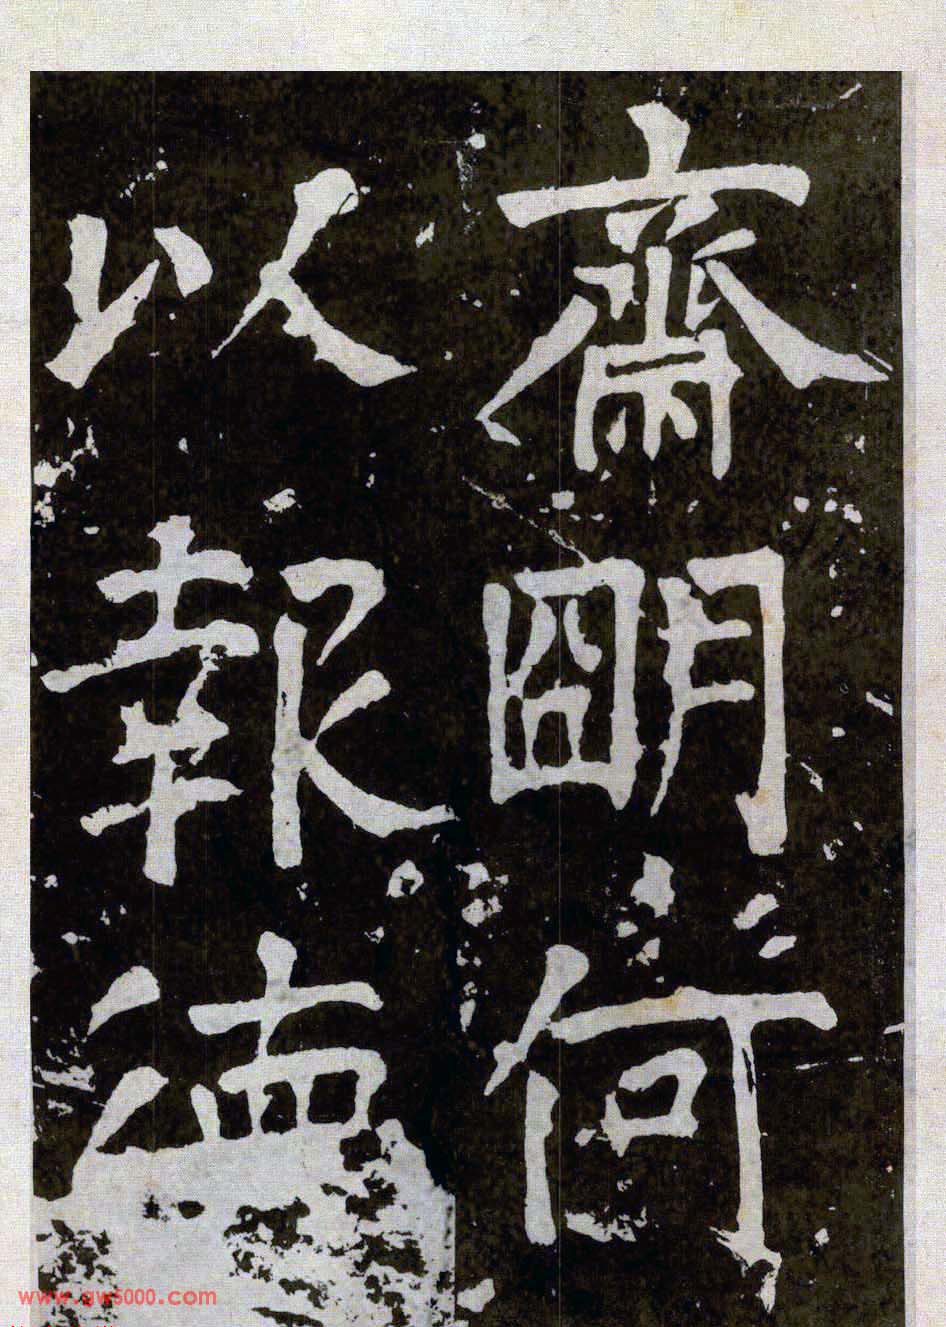 齋朙何
以報德
www.gw5000.com